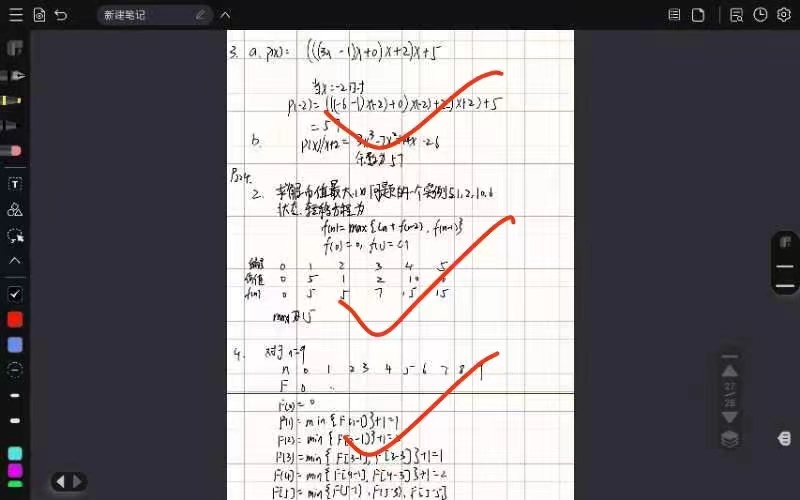 新建笔记
3. a. p(x) = (((3x -1)x+0)x+2)x+5
当x=-2时
p(-2) = (((-6-1)x(-2)+0)x(-2)+2)x(-2)+5
= 57
b. p(x)/x+2 = 3x³-7x²+14x-26
余数为57
P224.
2. 求解币值最大化问题的一个实例5,1,2,10,6
状态转移方程为
f(n)=max{Cn+f(n-2), f(n-1)}
f(0)=0, f(1)=C1
编号 0 1 2 3 4 5
价值 0 5 1 2 10
f(n) 0 5 5 7 15 15
max 15
4. 对于n=9
n 0 1 2 3 4 5 6 7 8 9
F 0
F(0)=0
F(1)=min{F[1-1]}+1=1
F(2)=min{F[2-1]}+1=2
F(3)=min{F[3-1], F[3-3]}+1=1
F(4)=min{F[4-1], F[4-3]}+1=2
F[5]=min{F(5-1), F(5-3), F[5-5]
27
28
T